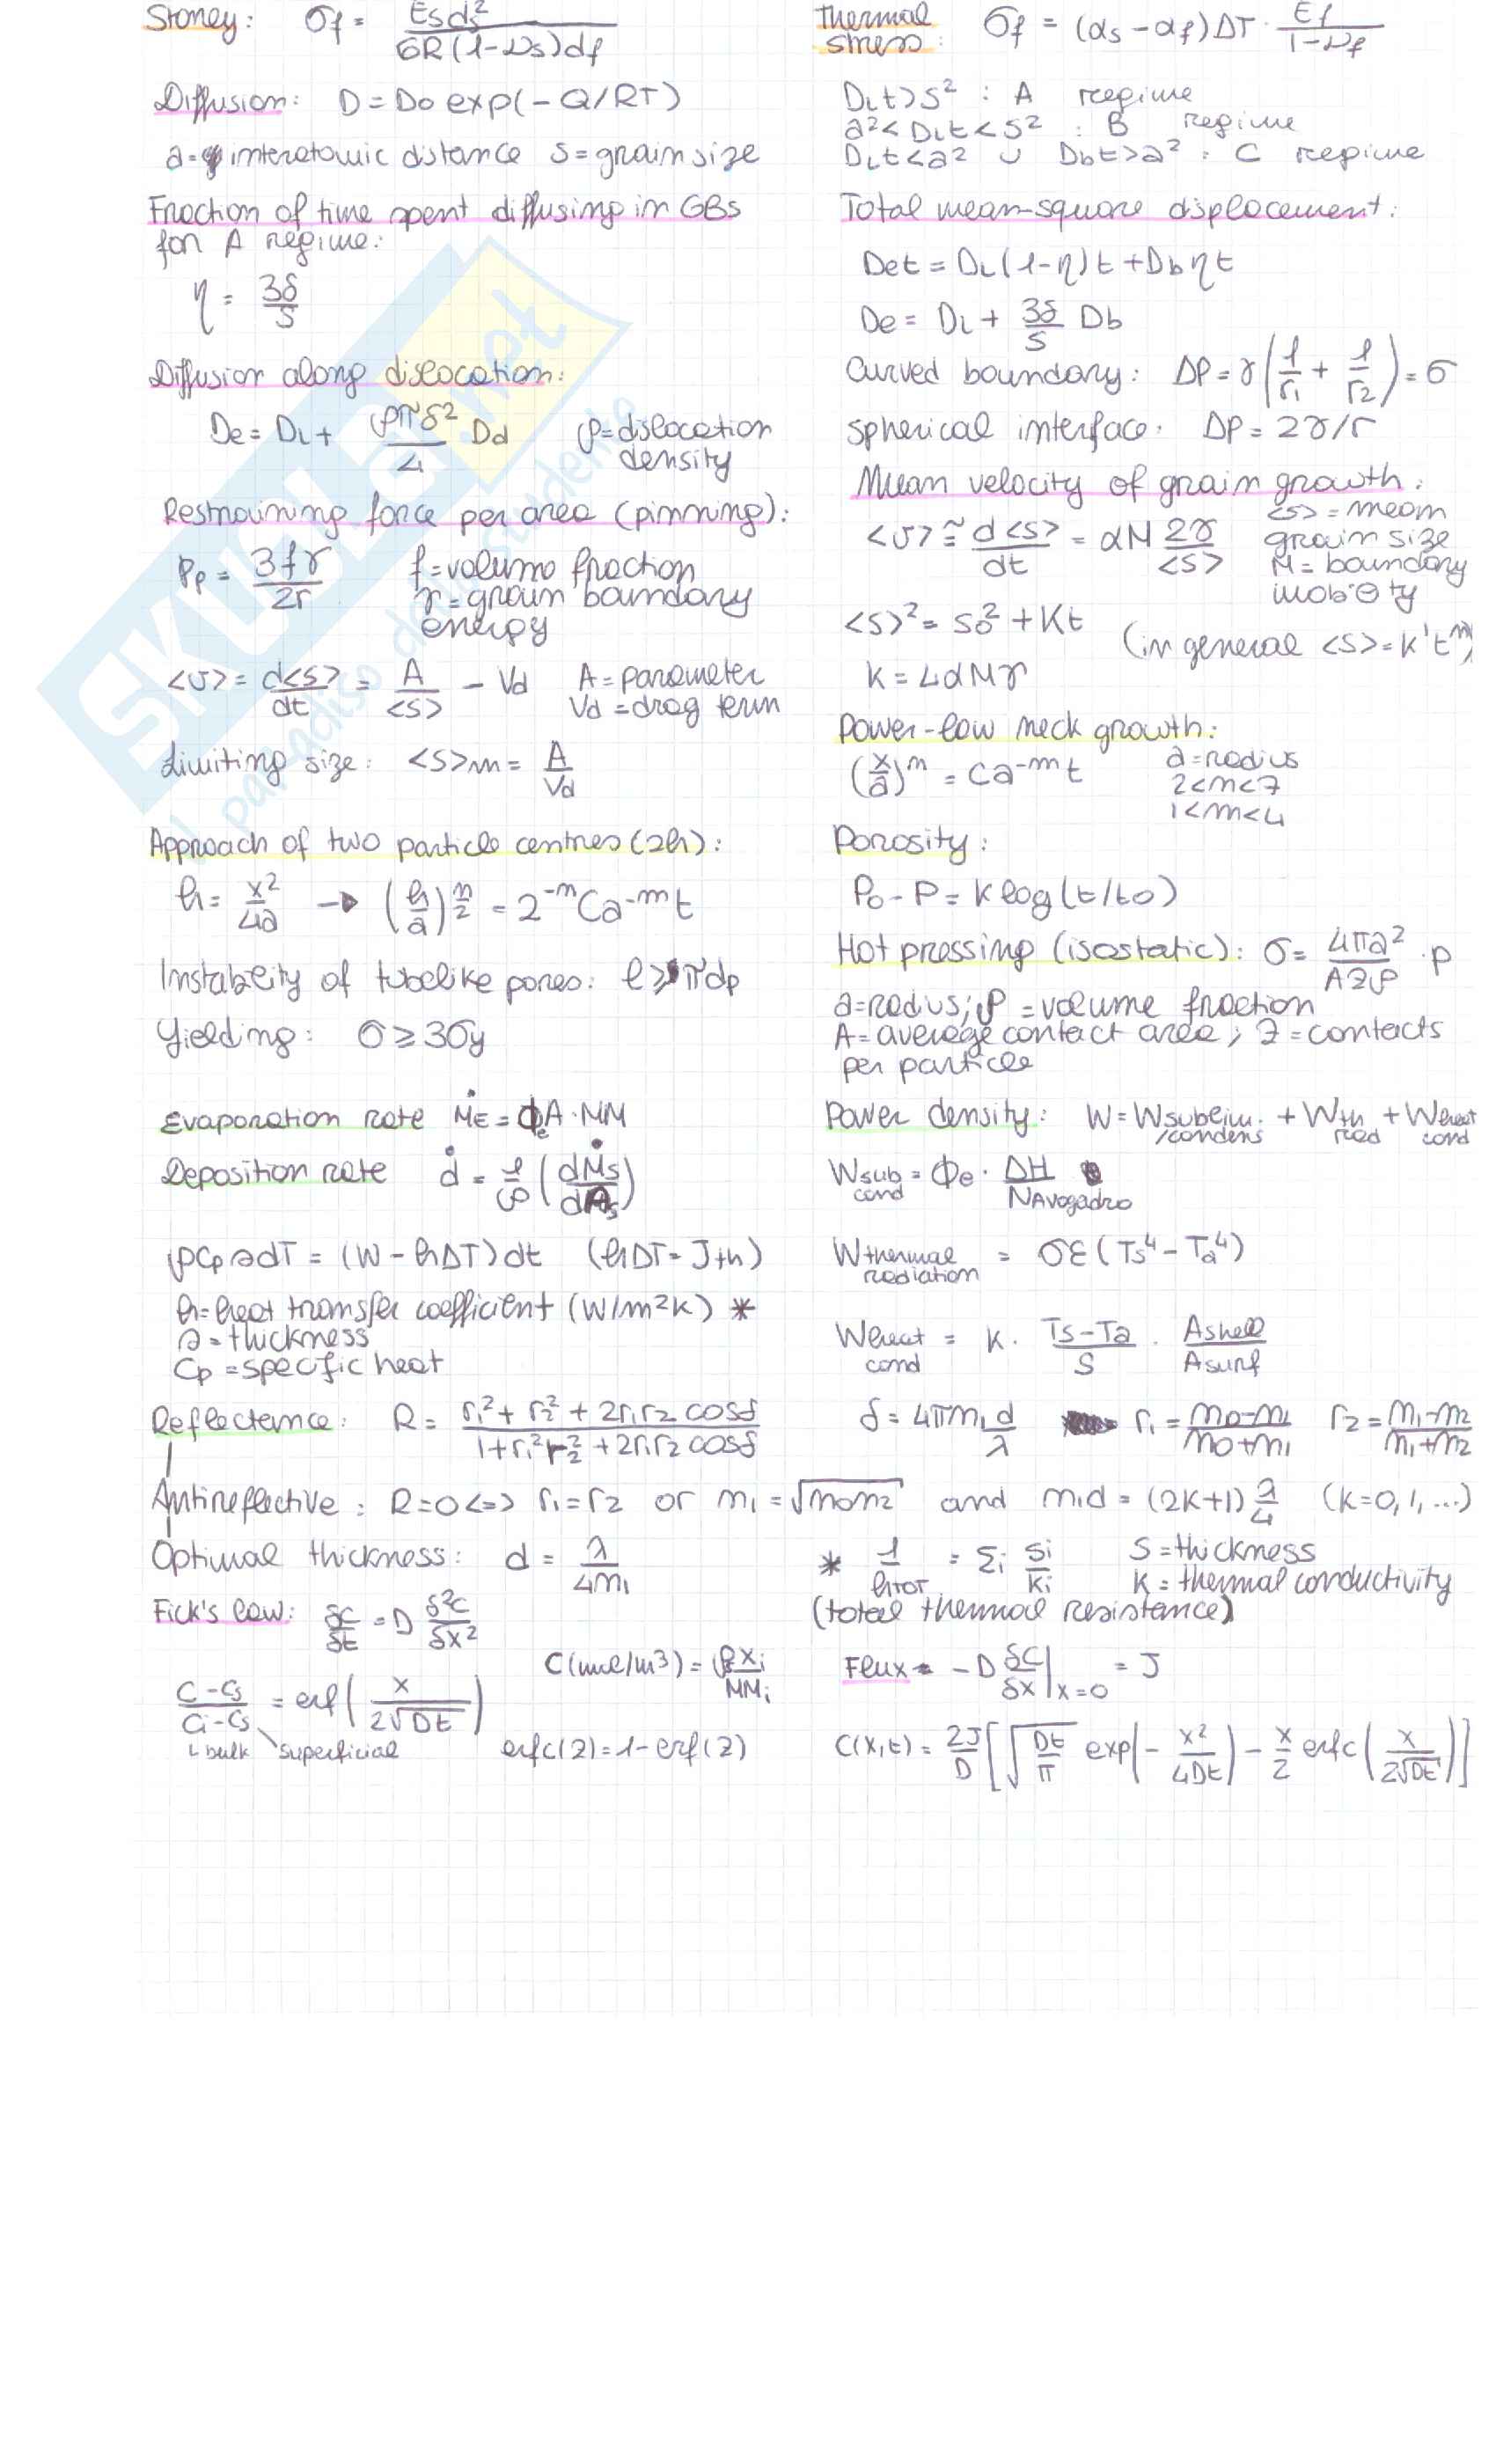 Stoney: σf = Esds²/6R(1-νs)df
Thermal stress: σf = (αs-αf)ΔT · Ef/1-νf
Diffusion: D = D0 exp(-Q/RT)
DLt > s² : A regime
a² < DLt < s² : B regime
a = interatomic distance s = grain size
DLt < a² ∪ Dbt > a² : C regime
Fraction of time spent diffusing in GBs
for A regime:
η = 3δ/s
Total mean-square displacement:
Det = DL(1-η)t + Dbηt
De = DL + 3δ/s Db
Diffusion along dislocation:
De = DL + ρπδ²/4 Dd ρ = dislocation density
Curved boundary: ΔP = γ(1/r1 + 1/r2) = σ
spherical interface: ΔP = 2γ/r
Restraining force per area (pinning):
Pp = 3fγ/2r f = volume fraction
γ = grain boundary energy
Mean velocity of grain growth:
<v> ≅ d<s>/dt = αM 2γ/<s> <s> = mean grain size
M = boundary mobility
<s>² = s0² + Kt (in general <s> = K't^n)
K = 4αMγ
<v> = d<s>/dt = A/<s> - Vd A = parameter
Vd = drag term
Limiting size: <s>m = A/Vd
Power-law neck growth:
(x/a)^n = Ca^-m t a = radius
2<n<7
1<m<4
Approach of two particle centres (2h):
h = x²/4a → (h/a)^n/2 = 2^-n Ca^-m t
Porosity:
P0 - P = K log(t/t0)
Instability of tubelike pores: l ≥ πdp
Yielding: σ ≥ 3σy
Hot pressing (isostatic): σ = 4πa²/AZρ · p
a = radius; ρ = volume fraction
A = average contact area; Z = contacts
per particle
Evaporation rate ṀE = ΦeA · MM
Deposition rate ḋ = 1/ρ (dṀs/dAs)
Power density: W = Wsublim./condens + Wth rad + Wheat cond
Wsub cond = Φe · ΔH/NAvogadro
ρCp s dT = (W - hΔT)dt (hΔT = Jth)
h = heat transfer coefficient (W/m²K) *
s = thickness
Cp = specific heat
Wthermal radiation = σε(Ts⁴ - Ta⁴)
Wheat cond = K · Ts-Ta/S · Ashell/Asurf
Reflectance: R = r1² + r2² + 2r1r2 cosδ/1 + r1²r2² + 2r1r2 cosδ
δ = 4πn1d/λ r1 = n0-n1/n0+n1 r2 = n1-n2/n1+n2
Antireflective: R=0 <=> r1 = r2 or n1 = √n0n2 and n1d = (2K+1) λ/4 (K=0,1,...)
Optimal thickness: d = λ/4n1
* 1/hTOT = Σi si/ki S = thickness
K = thermal conductivity
(total thermal resistance)
Fick's law: δC/δt = D δ²C/δx²
C(mol/m³) = ρxi/MMi
Flux - D δC/δx |x=0 = J
C-Cs/Ci-Cs = erf(x/2√Dt)
bulk superficial
erfc(z) = 1 - erf(z)
C(x,t) = 2J/D [√Dt/π exp(-x²/4Dt) - x/2 erfc(x/2√Dt)]
SKUOLA.net
il paradiso dello studente